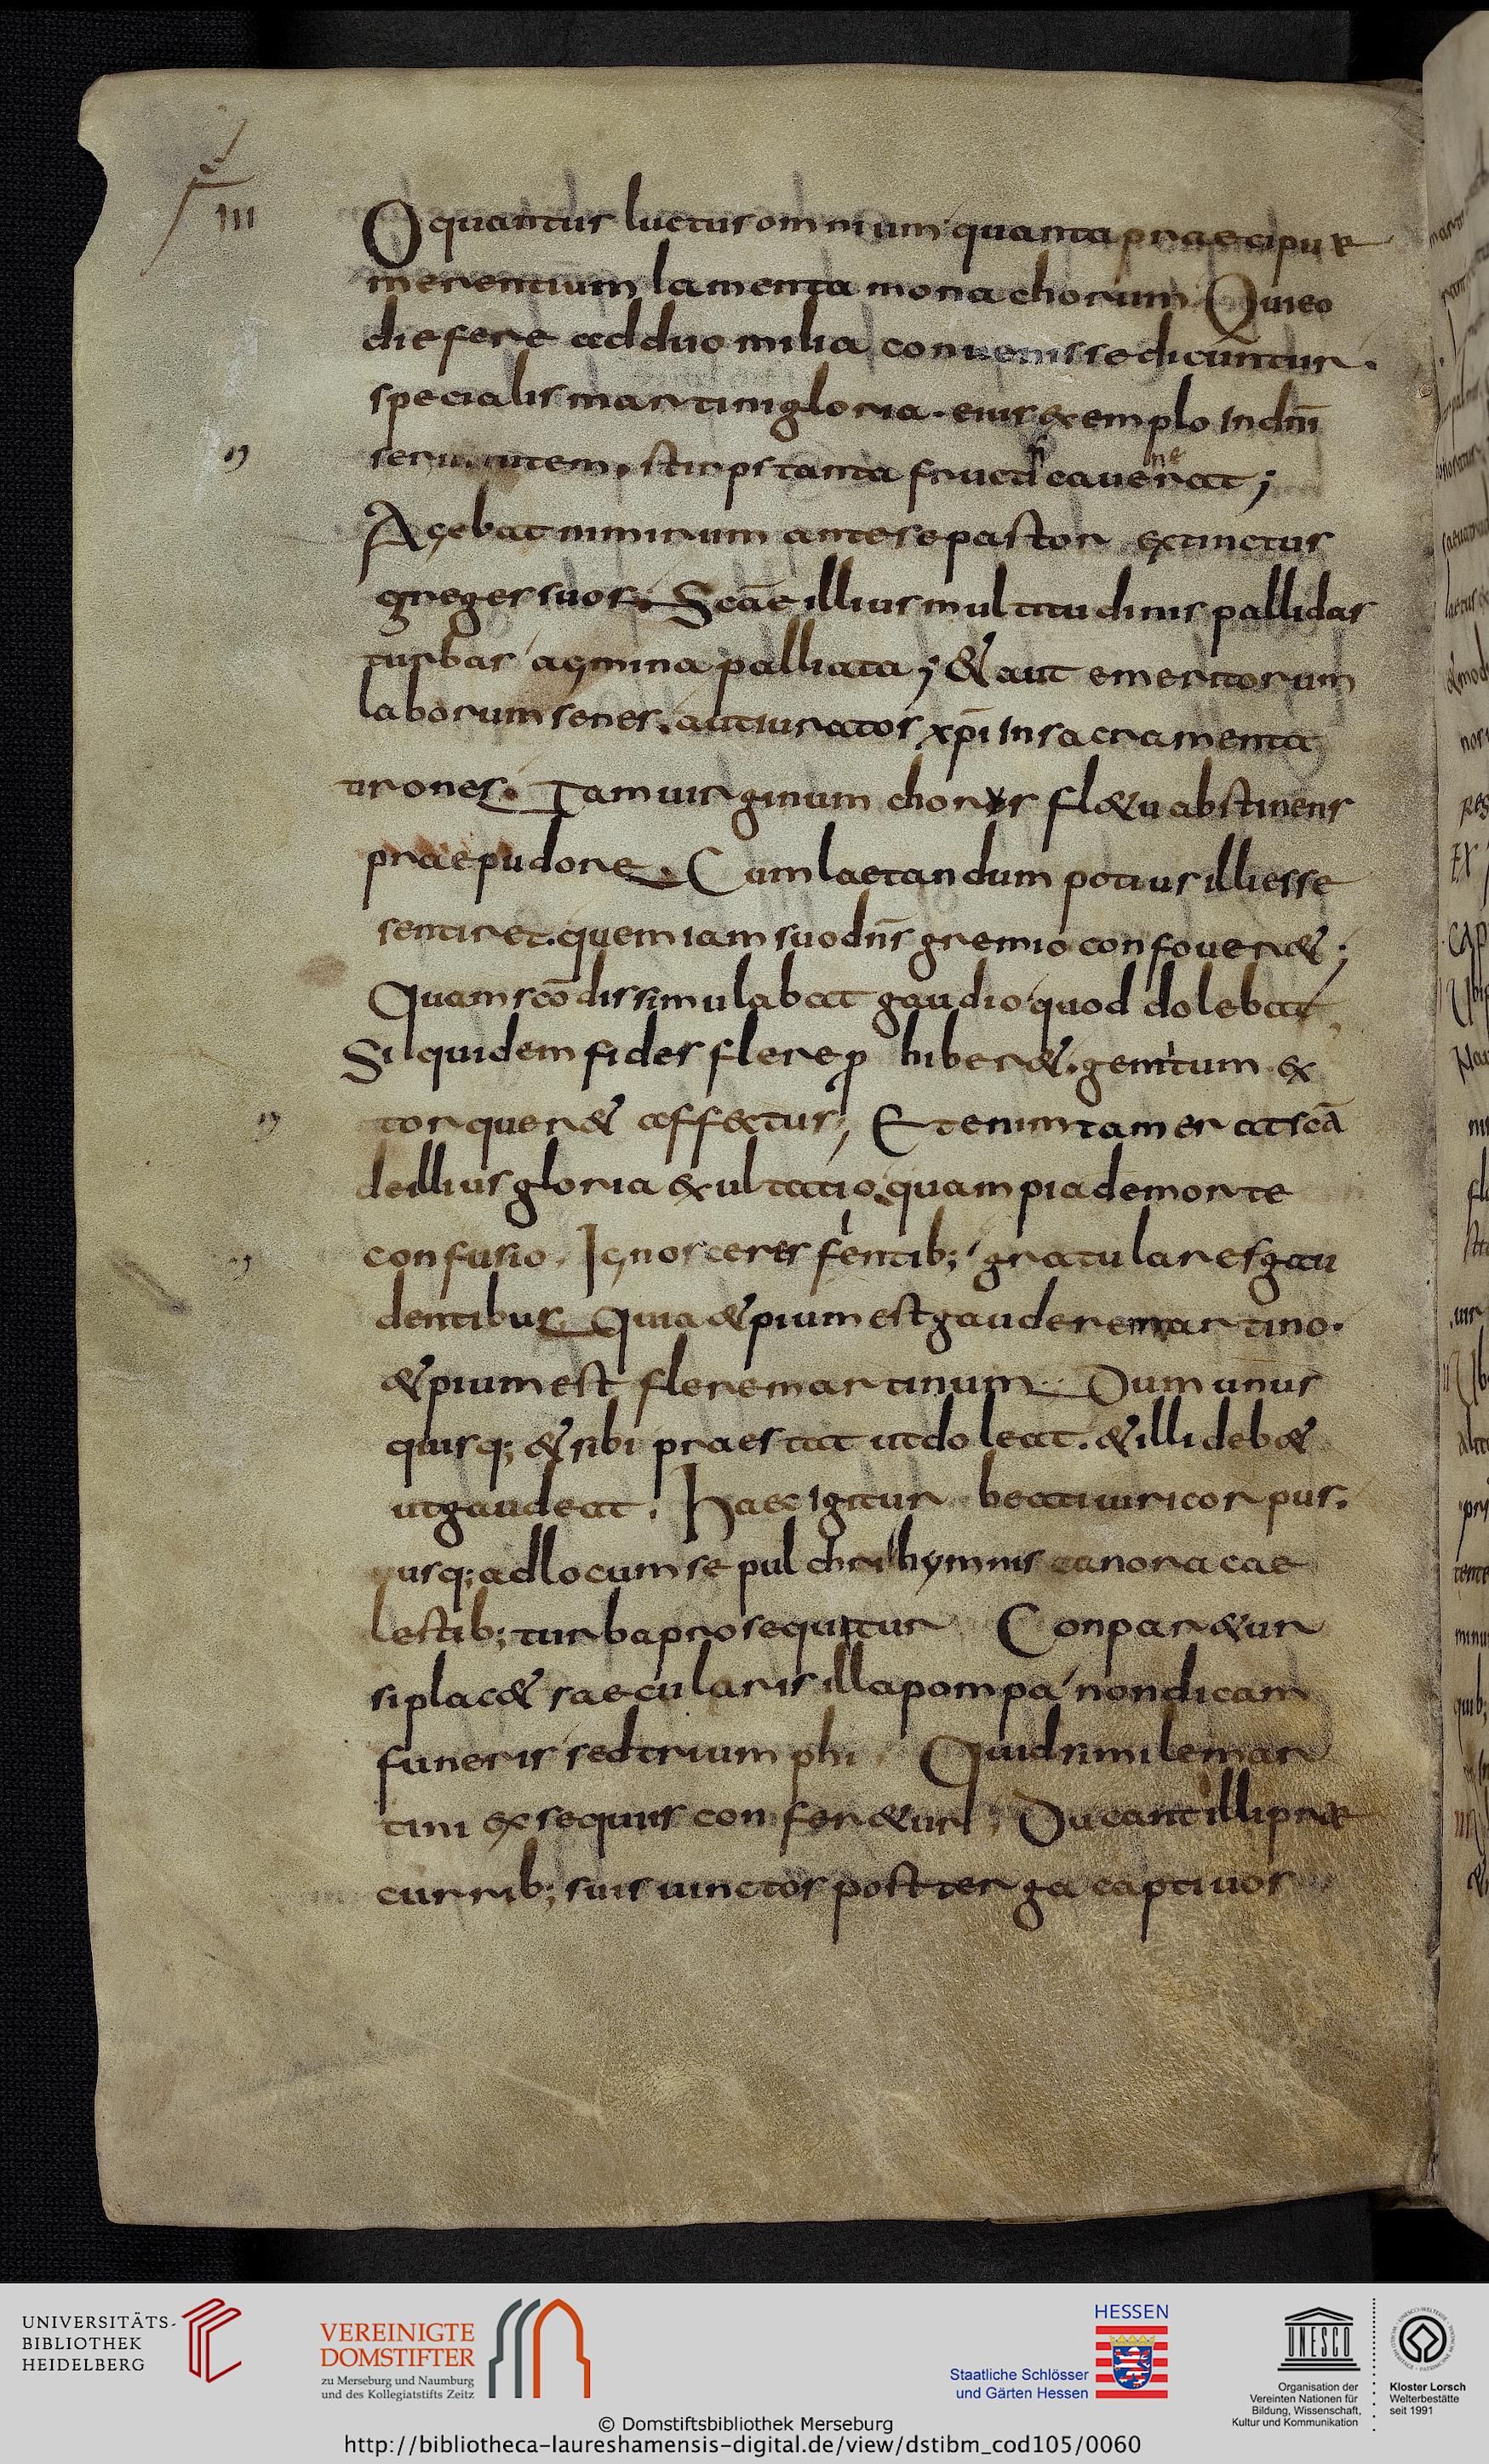 III
O quantus luctus omnium quanta praecipue
merentium lamenta monachorum Qui eo
die fere ad duo milia convenisse dicuntur.
specialis martini gloria. eius exemplo in dn̄i
servitutem. stirps tanta fructificaverat;
Agebat nimirum ante se pastor extinctus
greges suos. Scāe illius multitudinis pallidas
turbas agmina palliata; & aut emeritorum
laborum senes. aut iuratos xp̄i in sacramenta
tirones. Tam virginum chorus fl&u abstinens
prae pudore. Cum laetandum potius illi esse
sentiret. quem iam suo dn̄s gremio confover&;
Quam scō dissimulabat gaudio quod dolebat,
Si quidem fides flere p hiber&. gemitum ex
torquer& affectus; Etenim tam erat scā
de illius gloria exultatio. quam pia de morte
confusio. Ignosceres flentib; gratulares gau
dentibus. Quia & pium est gaudere martino.
& pium est flere martinum. Dum unus
quisq; & sibi praestat ut doleat. & illi deb&
ut gaudeat. Haec igitur beati viri corpus.
usq; ad locum sepulchri hymnis canora cae
lestib; turba prosequitur Conpar&ur
si plac& saecularis illa pompa non dicam
funeris sed trium phi. Quid simile mar
tini exsequiis confer&ur; Ducant illi prae
currib; suis vinctos post terga captivos
UNIVERSITÄTS-
BIBLIOTHEK
HEIDELBERG
VEREINIGTE
DOMSTIFTER
zu Merseburg und Naumburg
und des Kollegiatstifts Zeitz
HESSEN
Staatliche Schlösser
und Gärten Hessen
UNESCO
Organisation der
Vereinten Nationen für
Bildung, Wissenschaft,
Kultur und Kommunikation
Kloster Lorsch
Welterbestätte
seit 1991
© Domstiftsbibliothek Merseburg
http://bibliotheca-laureshamensis-digital.de/view/dstibm_cod105/0060